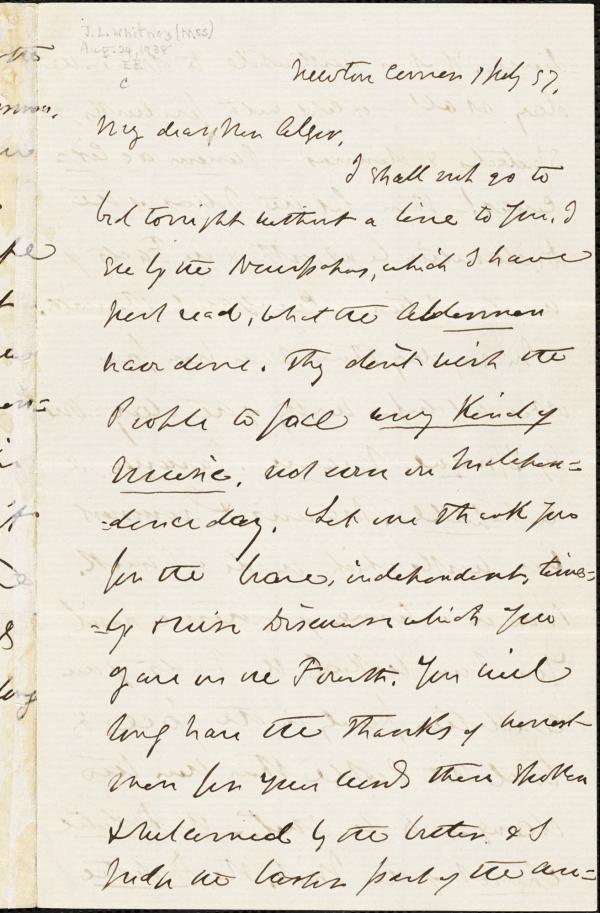 J. L. Whitney (MSS)
Aug. 24, 1938
EE
C
Newton Corner 7 July 57.
My dear Mr Alger,
I shall not go to
bed tonight without a line to you. I
see by the Newspapers, which I have
just read, what the Aldermen
have done. They don't wish the
People to face any Kind of
Music, not even on Indepen=
=dence day. Let me thank you
for the brave, independent, time=
=ly & wise Discourse which you
gave on the Fourth. You will
long have the thanks of honest
men for your words then spoken
& welcomed by the better & I
judge the larger part of the au=